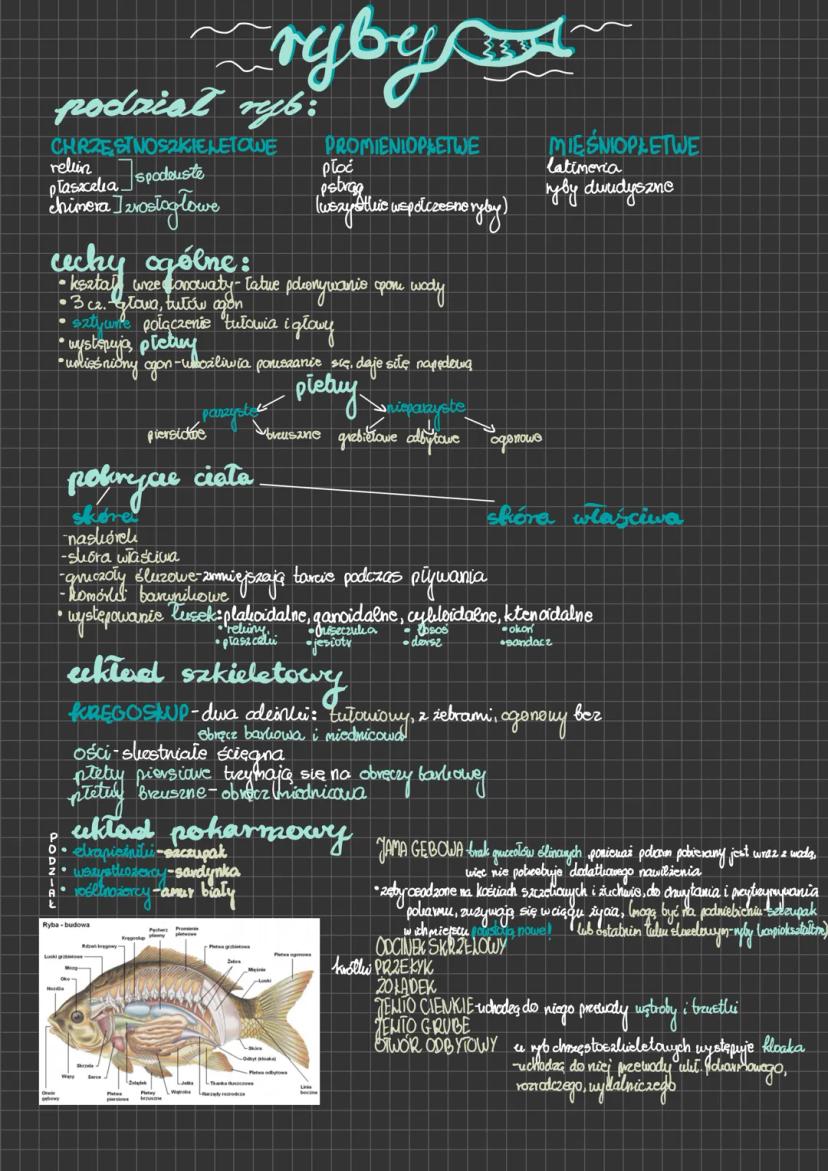 ryby
podział ryb:
CHRZĘSTNOSZKIELETOWE PROMIENIOPŁETWE MIĘŚNIOPŁETWE
rekin
płaszczka ] spodouste
chimera ] zrosłogłowe
płoć
pstrąg
(wszystkie współczesne ryby)
latimeria
ryby dwudyszne
cechy ogólne:
• kształt wrzecionowaty - łatwe pokonywanie oporu wody
• 3 cz. - głowa, tułów ogon
• sztywne połączenie tułowia i głowy
• występują płetwy
• umięśniony ogon - umożliwia poruszanie się, daje siłę napędową
płetwy
parzyste nieparzyste
piersiowe brzuszne grzbietowe odbytowe ogonowe
pokrycie ciała
skóra skóra właściwa
- naskórek
- skóra właściwa
- gruczoły śluzowe - zmniejszają tarcie podczas pływania
- komórki barwnikowe
• występowanie łusek: plakoidalne, ganoidalne, cykloidalne, ktenoidalne
• rekiny, • niszczuka • łosoś • okoń
• płaszczki • jesiotr • dorsz • sandacz
układ szkieletowy
KRĘGOSŁUP - dwa odcinki: tułowiowy, z żebrami, ogonowy bez
obręcz barkowa i miednicowa
ości - skostniałe ścięgna
płetwy piersiowe trzymają się na obręczy barkowej
płetwy brzuszne - obręcz miednicowa
układ pokarmowy
PODZIAŁ
• drapieżniki - szczupak
• wszystkożercy - sardynka
• roślinożercy - amur biały
JAMA GĘBOWA - brak gruczołów ślinowych, ponieważ pokarm pobierany jest wraz z wodą,
więc nie potrzebuje dodatkowego nawilżenia
• zęby osadzone na kościach szczękowych i żuchwie, do chwytania i przytrzymywania
pokarmu, zużywają się w ciągu życia, (mogą być na podniebieniu - szczupak
w ich miejscu powstają nowe! lub ostatnim łuku skrzelowym - ryby karpiokształtne)
ODCINEK SKRZELOWY
krótki PRZEŁYK
ŻOŁĄDEK
JELITO CIENKIE - uchodzą do niego przewody wątroby i trzustki
JELITO GRUBE
OTWÓR ODBYTOWY u ryb chrzęstnoszkieletowych występuje kloaka
- uchodzą do niej przewody ukł. pokarmowego,
rozrodczego, wydalniczego
Ryba - budowa
Pęcherz pławny
Promienie płetwowe
Kręgosłup
Rdzeń kręgowy
Płetwa grzbietowa
Łuski grzbietowe
Płetwa ogonowa
Żebra
Mózg
Mięśnie
Oko
Łuski
Nozdrza
Skóra
Odbyt (kloaka)
Skrzela
Płetwa odbytowa
Wąsy
Serce
Żołądek
Jelita
Tkanka tłuszczowa
Linia boczna
Otwór gębowy
Płetwa piersiowa
Płetwy brzuszne
Wątroba
Narządy rozrodcze